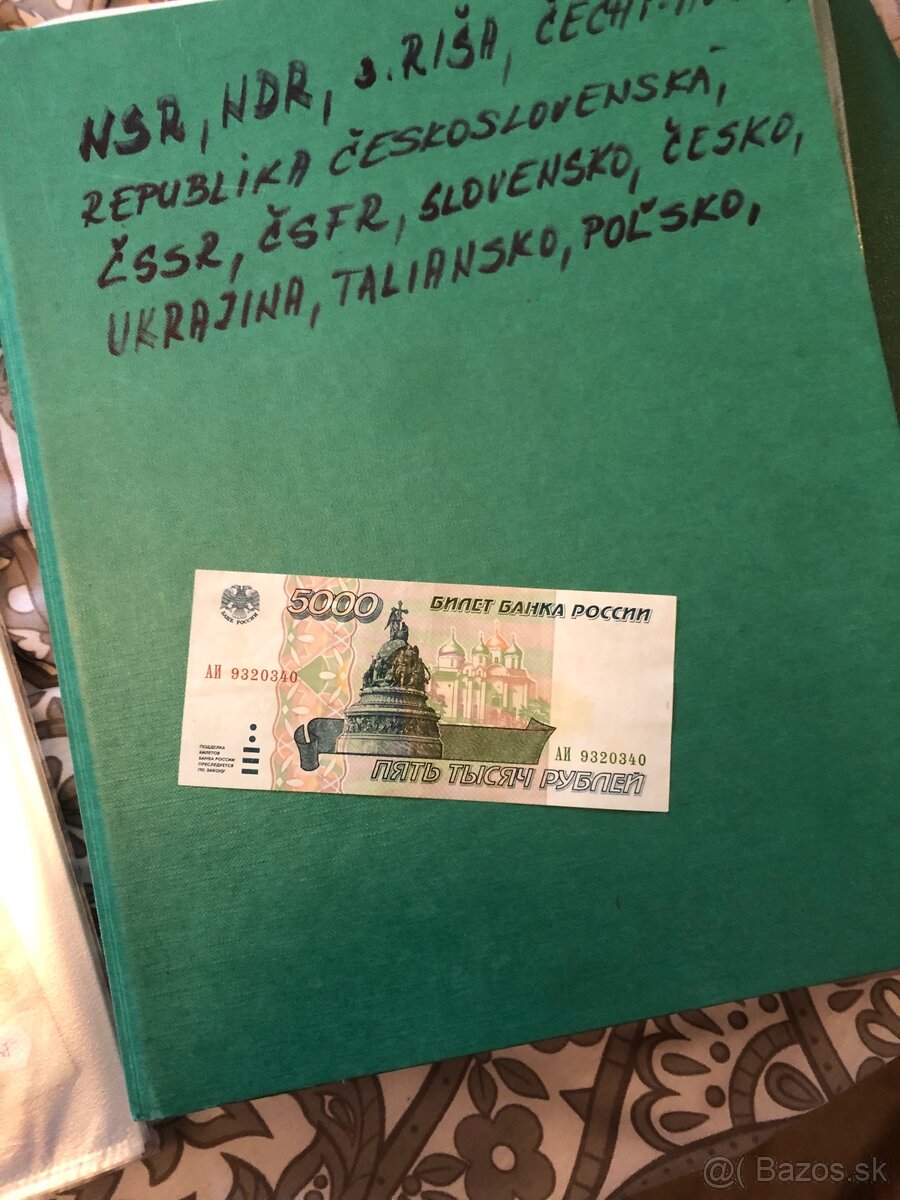 NSR, NDR, 3. RIŠA,
REPUBLIKA ČESKOSLOVENSKÁ,
ČSSR, ČSFR, SLOVENSKO, ČESKO,
UKRAJINA, TALIANSKO, POĽSKO,
5000
БИЛЕТ БАНКА РОССИИ
БАНК РОССИИ
АИ 9320340
ПОДДЕЛКА
БИЛЕТОВ
БАНКА РОССИИ
ПРЕСЛЕДУЕТСЯ
ПО ЗАКОНУ
АИ 9320340
ПЯТЬ ТЫСЯЧ РУБЛЕЙ
@( Bazos.sk